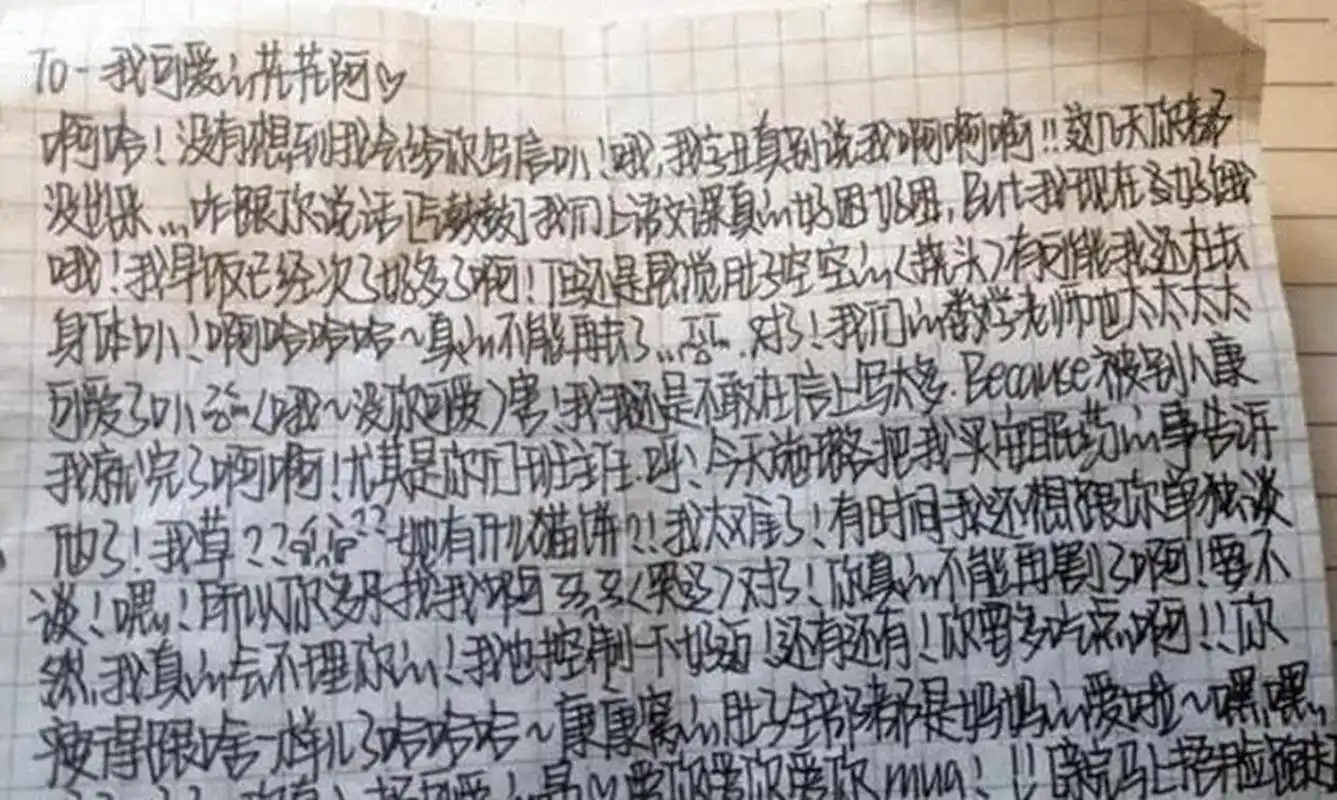 To-我可爱的芃芃阿♡
啊哈！没有想到我会给你写信叭！哦，我字丑真别说我啊啊啊！！这几天你都
没出来...咋跟你说话[弓鼓鼓]我们上语文课真的好困好困，But我现在多好饿
哦！我早饭已经次了好多了啊！但还是感觉肚子空空的（挠头）有可能我还在长
身体叭！啊哈哈哈哈～真的不能再长了...对了！我们的数学老师也太太太太
可爱了叭（哦～没你可爱）害！我我还是不敢在信上写太多.Because被别人康
我就完了啊啊！尤其是你们班主任.呼、今天她璐把我买安眠药的事告诉
他了！我草？？？？她有什么猫饼？？我太难了！有时间我还想跟你单独谈
谈！嘿，！所以你多来找我啊（哭）对了！你真的不能再割了啊！要不
然，我真的会不理你的！我也控制一下好趴！还有还有！你要多吃点啊！！你
瘦得跟啥一样儿了哈哈哈～康康窝的肚子全部都是妈妈的爱啦～嘿嘿，
爱你爱你爱你mua！！！马上捂脸跑走